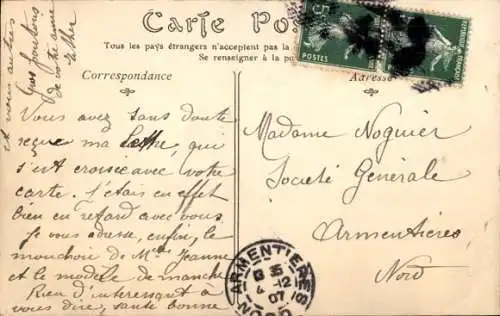 Carte Pos
Tous les pays étrangers n'acceptent pas la
Se renseigner à la pos
Correspondance
Adresse
POSTES
Vous avez sans doute
reçue ma lettre, qui
s'est croisée avec votre
carte. J'étais en effet
bien en retard avec vous
je vous adresse, enfin, le
mouchoir de Mlle Jeanne
et le modèle de manche
Rien d'intéressant à
vous dire, santé bonne
et vous autres
Gros
de votre amie
Esther
Madame Noguier
Societé Générale
Armentières
Nord
ARMENTIERES
4 -12
07
NORD